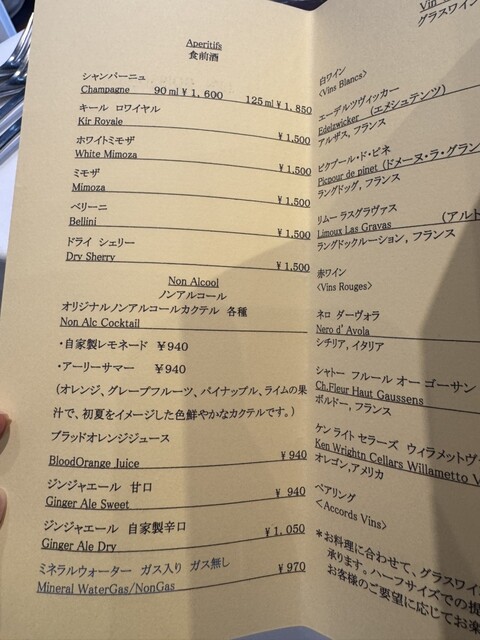 Aperitifs
食前酒
シャンパーニュ
Champagne 90ml ¥1,600 125ml ¥1,850
キール ロワイヤル
Kir Royale ¥1,500
ホワイトミモザ
White Mimoza ¥1,500
ミモザ
Mimoza ¥1,500
ベリーニ
Bellini ¥1,500
ドライ シェリー
Dry Sherry ¥1,500
Non Alcool
ノンアルコール
オリジナルノンアルコールカクテル 各種
Non Alc Cocktail
・自家製レモネード ¥940
・アーリーサマー ¥940
(オレンジ、グレープフルーツ、パイナップル、ライムの果
汁で、初夏をイメージした色鮮やかなカクテルです。)
ブラッドオレンジジュース
BloodOrange Juice ¥940
ジンジャエール 甘口
Ginger Ale Sweet ¥940
ジンジャエール 自家製辛口
Ginger Ale Dry ¥1,050
ミネラルウォーター ガス入り ガス無し
Mineral WaterGas/NonGas ¥970
グラスワイン
白ワイン
<Vins Blancs>
エーデルツヴィッカー (エメシュテンツ)
Edelzwicker
アルザス, フランス
ピクプール・ド・ピネ
Picpour de pinet (ドメーヌ・ラ・グラン
ラングドッグ, フランス
リムー ラスグラヴァス
Limoux Las Gravas (アルト
ラングドックルーション, フランス
赤ワイン
<Vins Rouges>
ネロ ダーヴォラ
Nero d' Avola
シチリア, イタリア
シャトー フルール オー ゴーサン
Ch.Fleur Haut Gaussens
ボルドー, フランス
ケン ライト セラーズ ウィラメットヴ
Ken Wrightn Cellars Willametto V
オレゴン,アメリカ
ペアリング
<Accords Vins>
*お料理に合わせて、グラスワイ
承ります。ハーフサイズでの提
お客様のご要望に応じてお楽